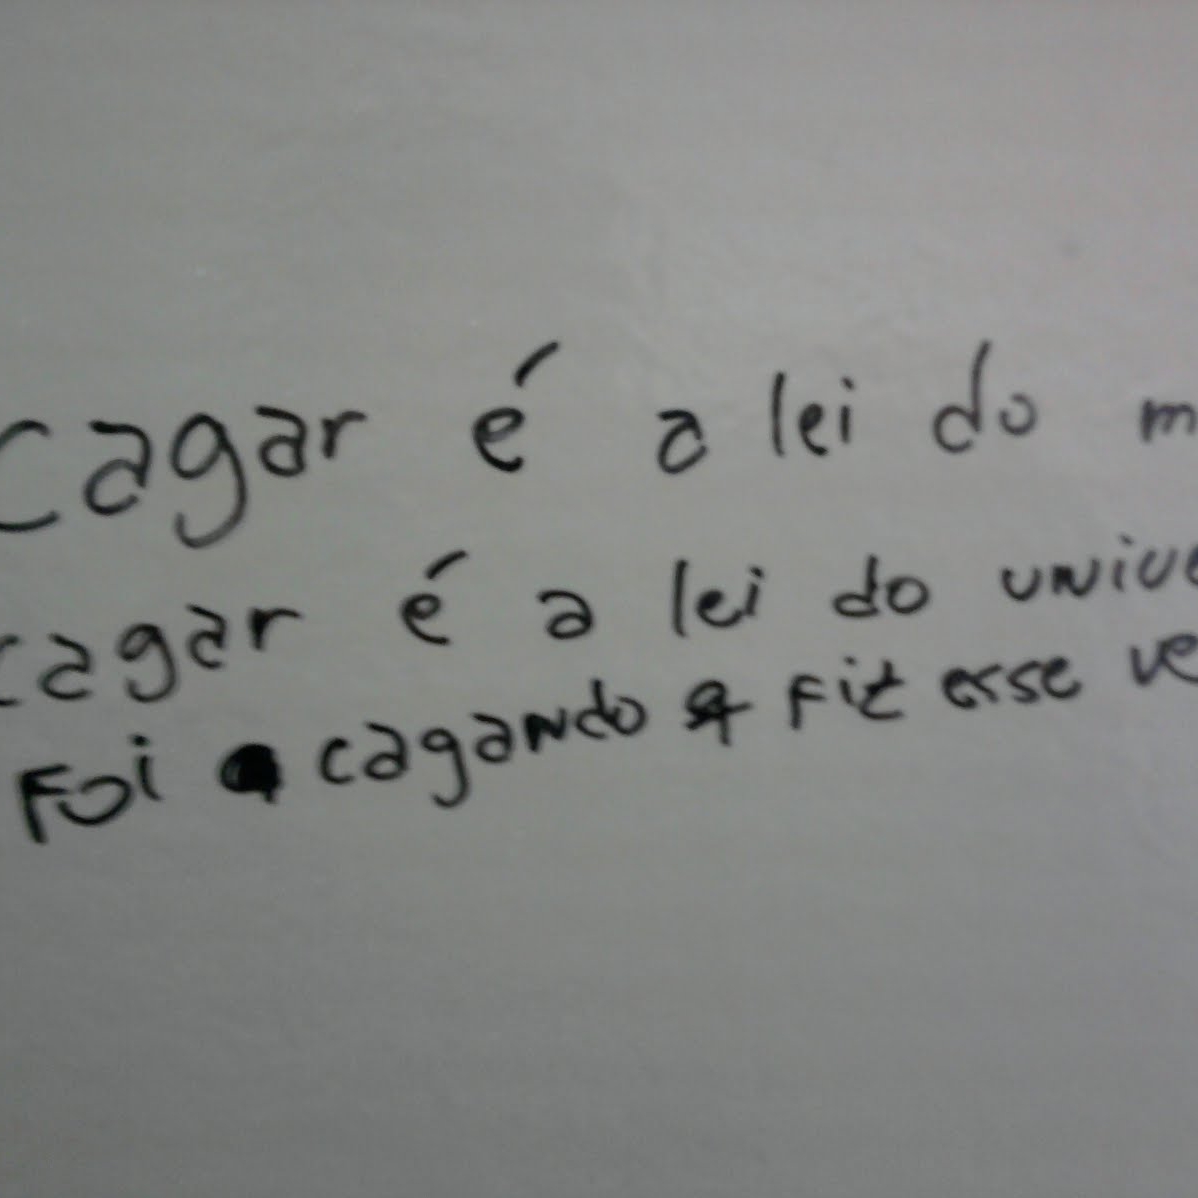 cagar é a lei do m
cagar é a lei do unive
Foi cagando q fiz esse ve